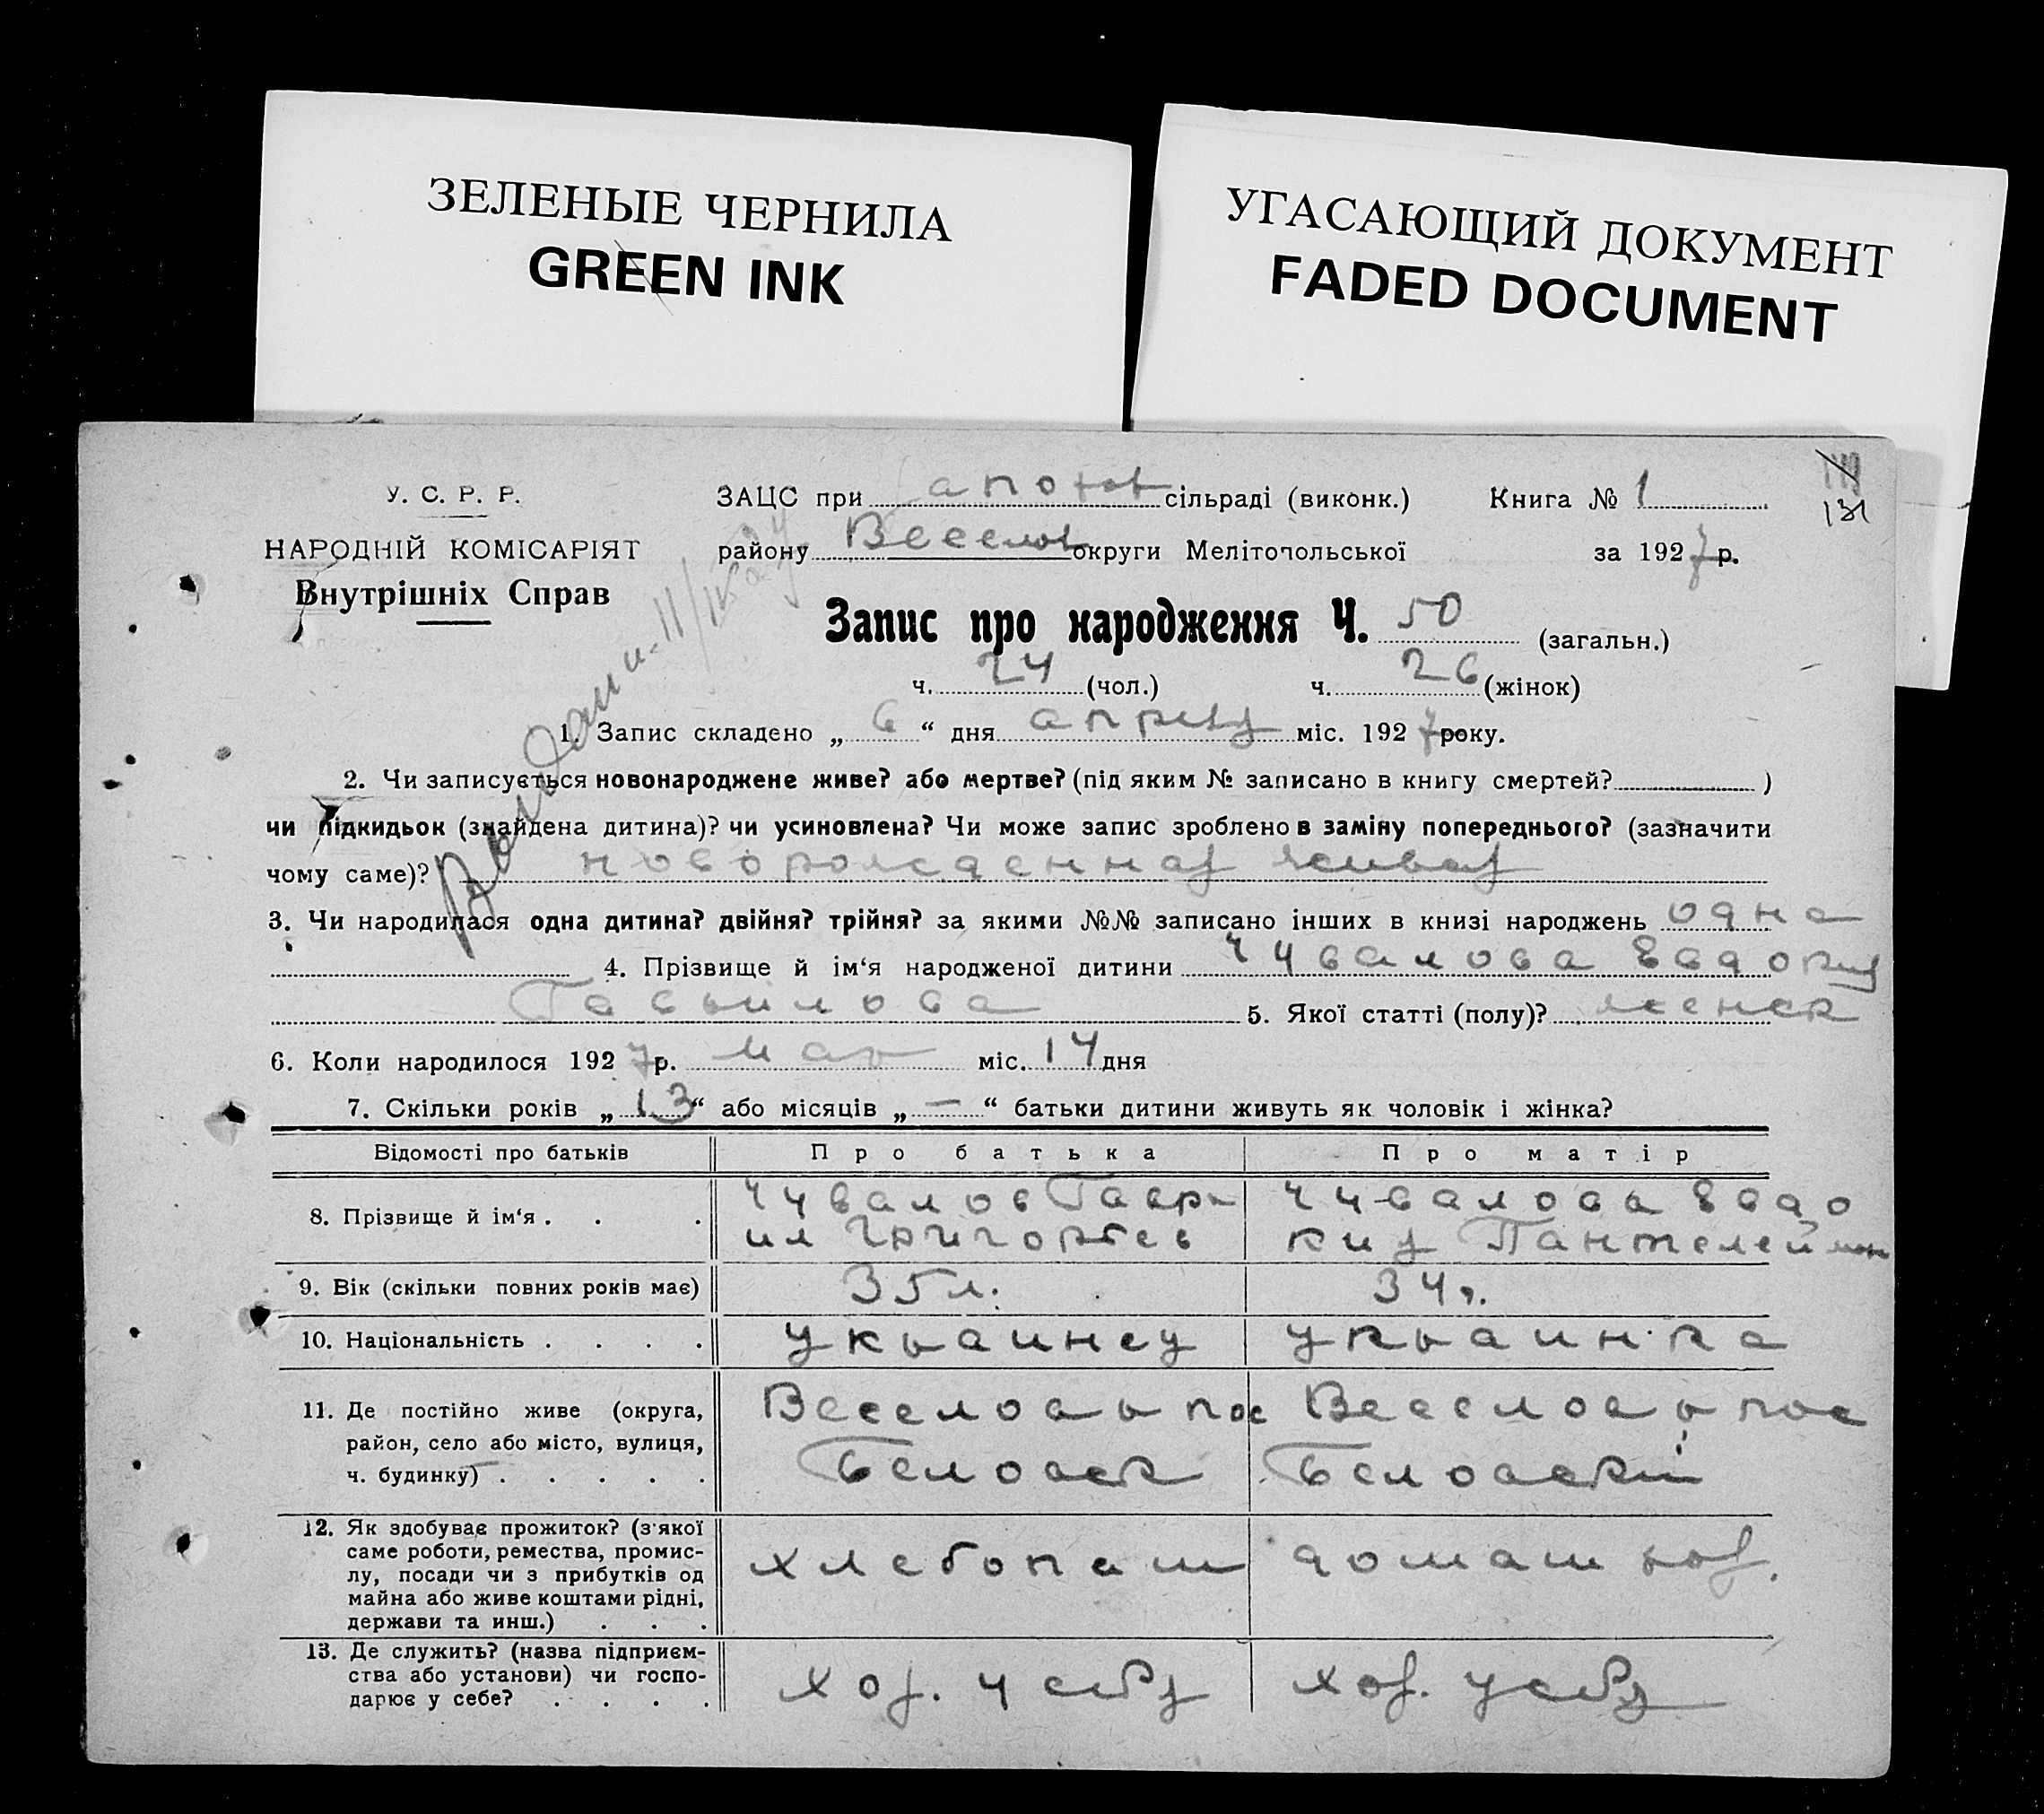 ЗЕЛЕНЫЕ ЧЕРНИЛА
GREEN INK
УГАСАЮЩИЙ ДОКУМЕНТ
FADED DOCUMENT
131
У. С. Р. Р.
НАРОДНІЙ КОМІСАРІЯТ
Внутрішніх Справ
ЗАЦС при сільраді (виконк.) Книга № 1
району Веселов округи Мелітопольської за 1927 р.
Запис про народження Ч. 50 (загальн.)
ч. 24 (чол.) ч. 26 (жінок)
1. Запис складено „ 6 “ дня міс. 1927 року.
2. Чи записується новонароджене живе? або мертве? (під яким № записано в книгу смертей? )
чи підкидьок (знайдена дитина)? чи усиновлена? Чи може запис зроблено в заміну попереднього? (зазначити
чому саме)? новорожденная живая
3. Чи народилася одна дитина? двійня? трійня? за якими №№ записано інших в книзі народжень одна
4. Прізвище й ім‘я народженої дитини Чувалова Евдокия
Гаврилова 5. Якої статті (полу)? женск
6. Коли народилося 1927 р. мар міс. 14 дня
7. Скільки років „ 13 “ або місяців „ — “ батьки дитини живуть як чоловік і жінка?
Відомості про батьків Про батька Про матір
8. Прізвище й ім‘я . . . Чувалов Гавр- Чувалова Евдо
ил Григорьев кия Пантелеймон
9. Вік (скільки повних років має) 35 л. 34 г.
10. Національність . . . . украинец украинка
11. Де постійно живе (округа, район, село або місто, вулиця, ч. будинку) . . . . . Веселов р пос Веселов р пос
Беловск Беловский
12. Як здобуває прожиток? (з‘якої саме роботи, ремества, промис-
лу, посади чи з прибутків од
майна або живе коштами рідні,
держави та инш.) . . . хлебопаш домаш хоз.
13. Де служить? (назва підприєм-
ства або установи) чи госпо-
дарює у себе? . . . . хоз. у себя хоз. у себя